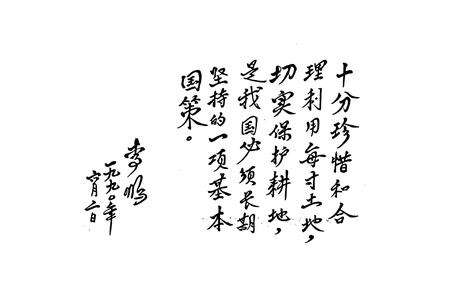 十分珍惜和合
理利用每寸土地，
切实保护耕地，
是我国必须长期
坚持的一项基本
国策。
李鹏
一九九〇年
六月二日